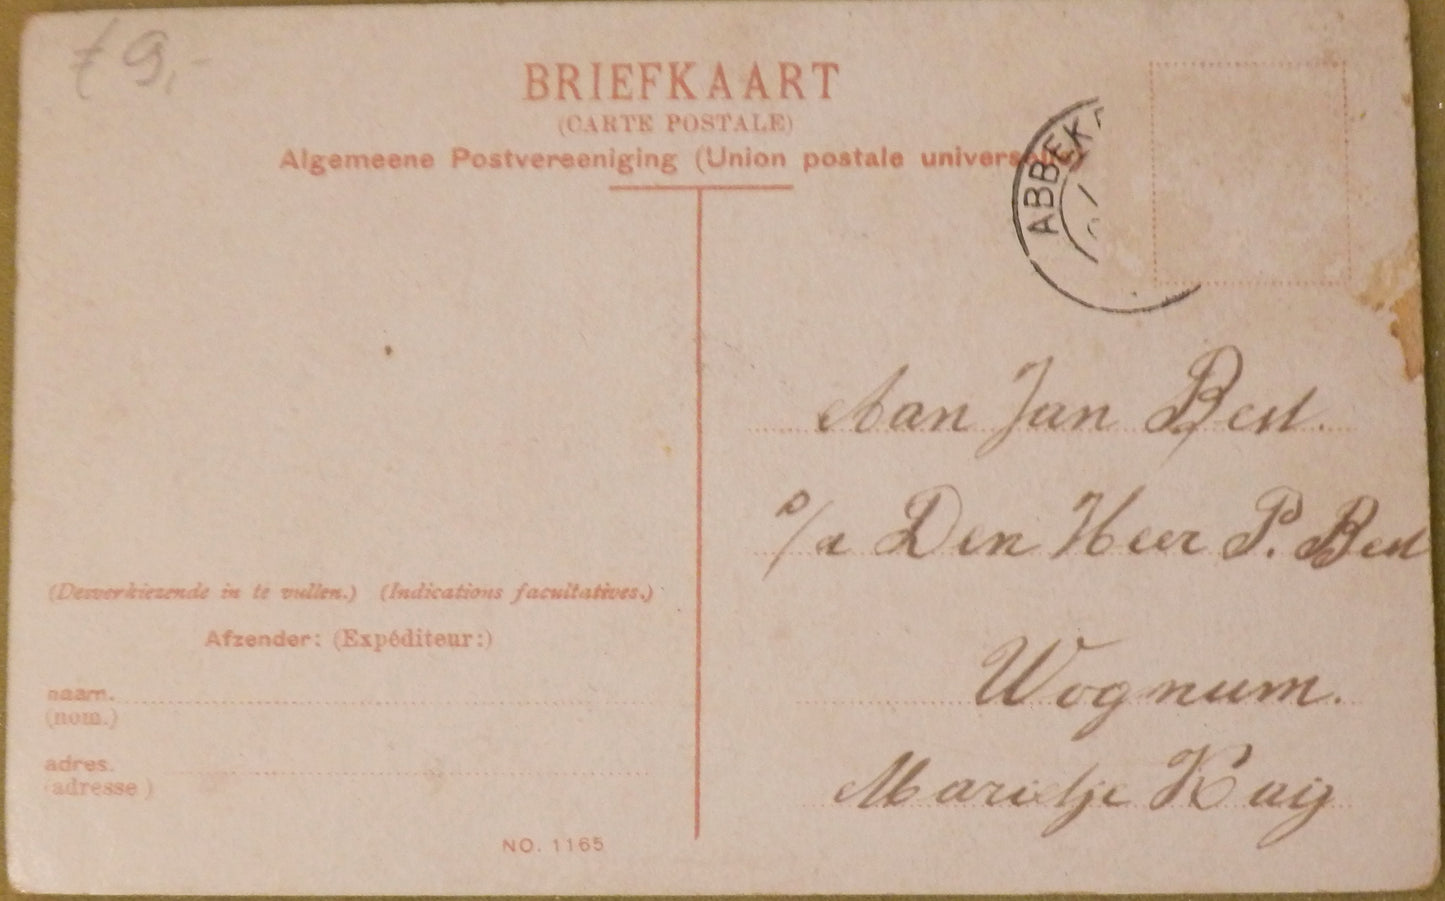 £ 9,-
BRIEFKAART
(CARTE POSTALE)
Algemeene Postvereeniging (Union postale universelle)
ABBEK
Aan Jan Best.
p/a Den Heer P. Best
Wognum.
Marietje Kaij
(Desverkiezende in te vullen.) (Indications facultatives.)
Afzender: (Expéditeur:)
naam.
(nom.)
adres.
(adresse)
NO. 1165